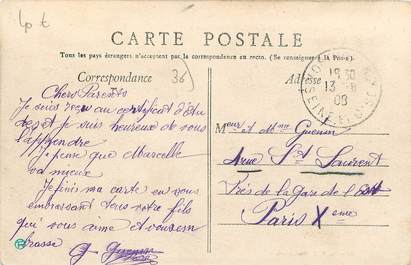 CARTE POSTALE
Tous les pays étrangers n'acceptent pas la correspondance au recto. (Se renseigner à la Poste).
Correspondance
36
Adresse
Chers Parents
Je suis reçu au certificat d'étu
des et je suis heureux de vous
l'apprendre
Je pense que Marcelle
va mieux
Je finis ma carte en vous
embrassant tous votre fils
qui vous aime et vous em
brasse
G Guenin
Mr et Mme Guenin
Rue St Laurent
Près de la Gare de l'Est
Paris Xème
SEINE
13
08